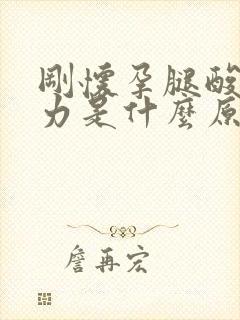 剛懷孕腿酸
力是什麼原
詹再宏